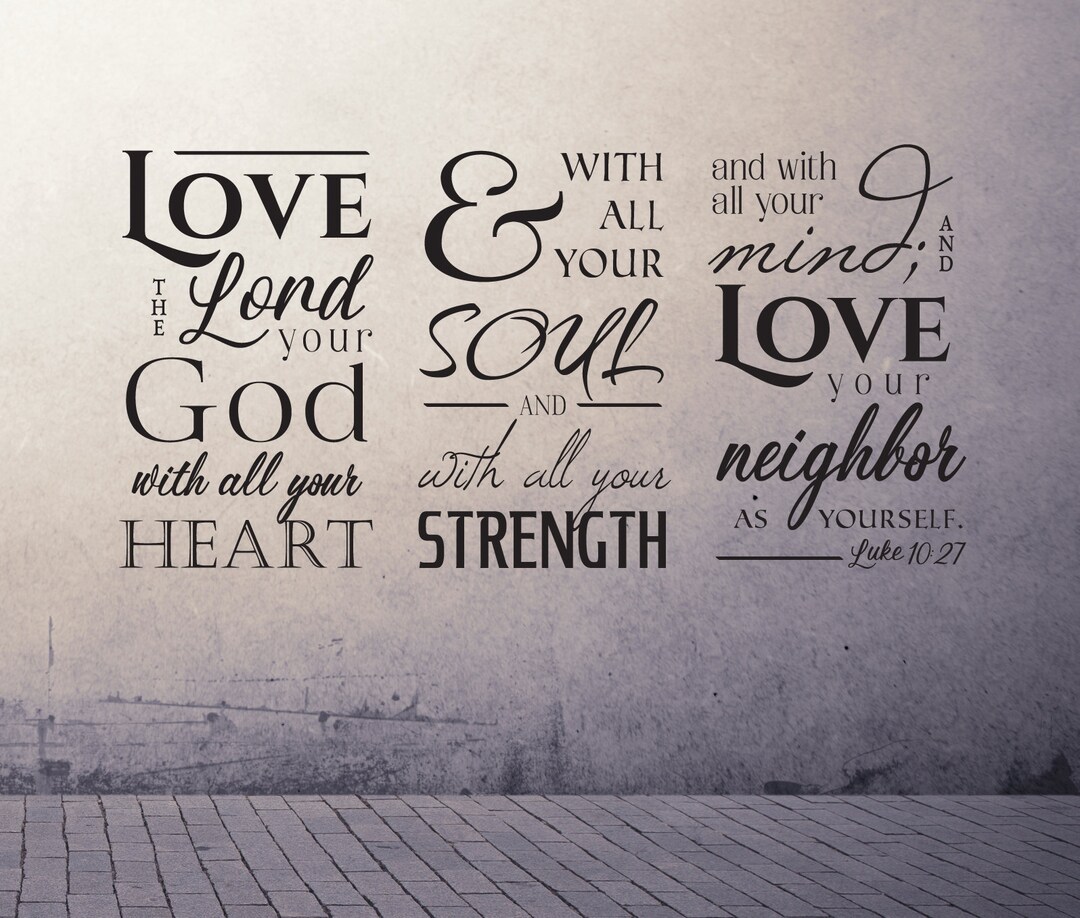 LOVE
THE Lord
your
God
with all your
HEART
& WITH
ALL
YOUR
SOUL
AND
with all your
STRENGTH
and with
all your
mind; AND
LOVE
your
neighbor
AS YOURSELF.
Luke 10:27